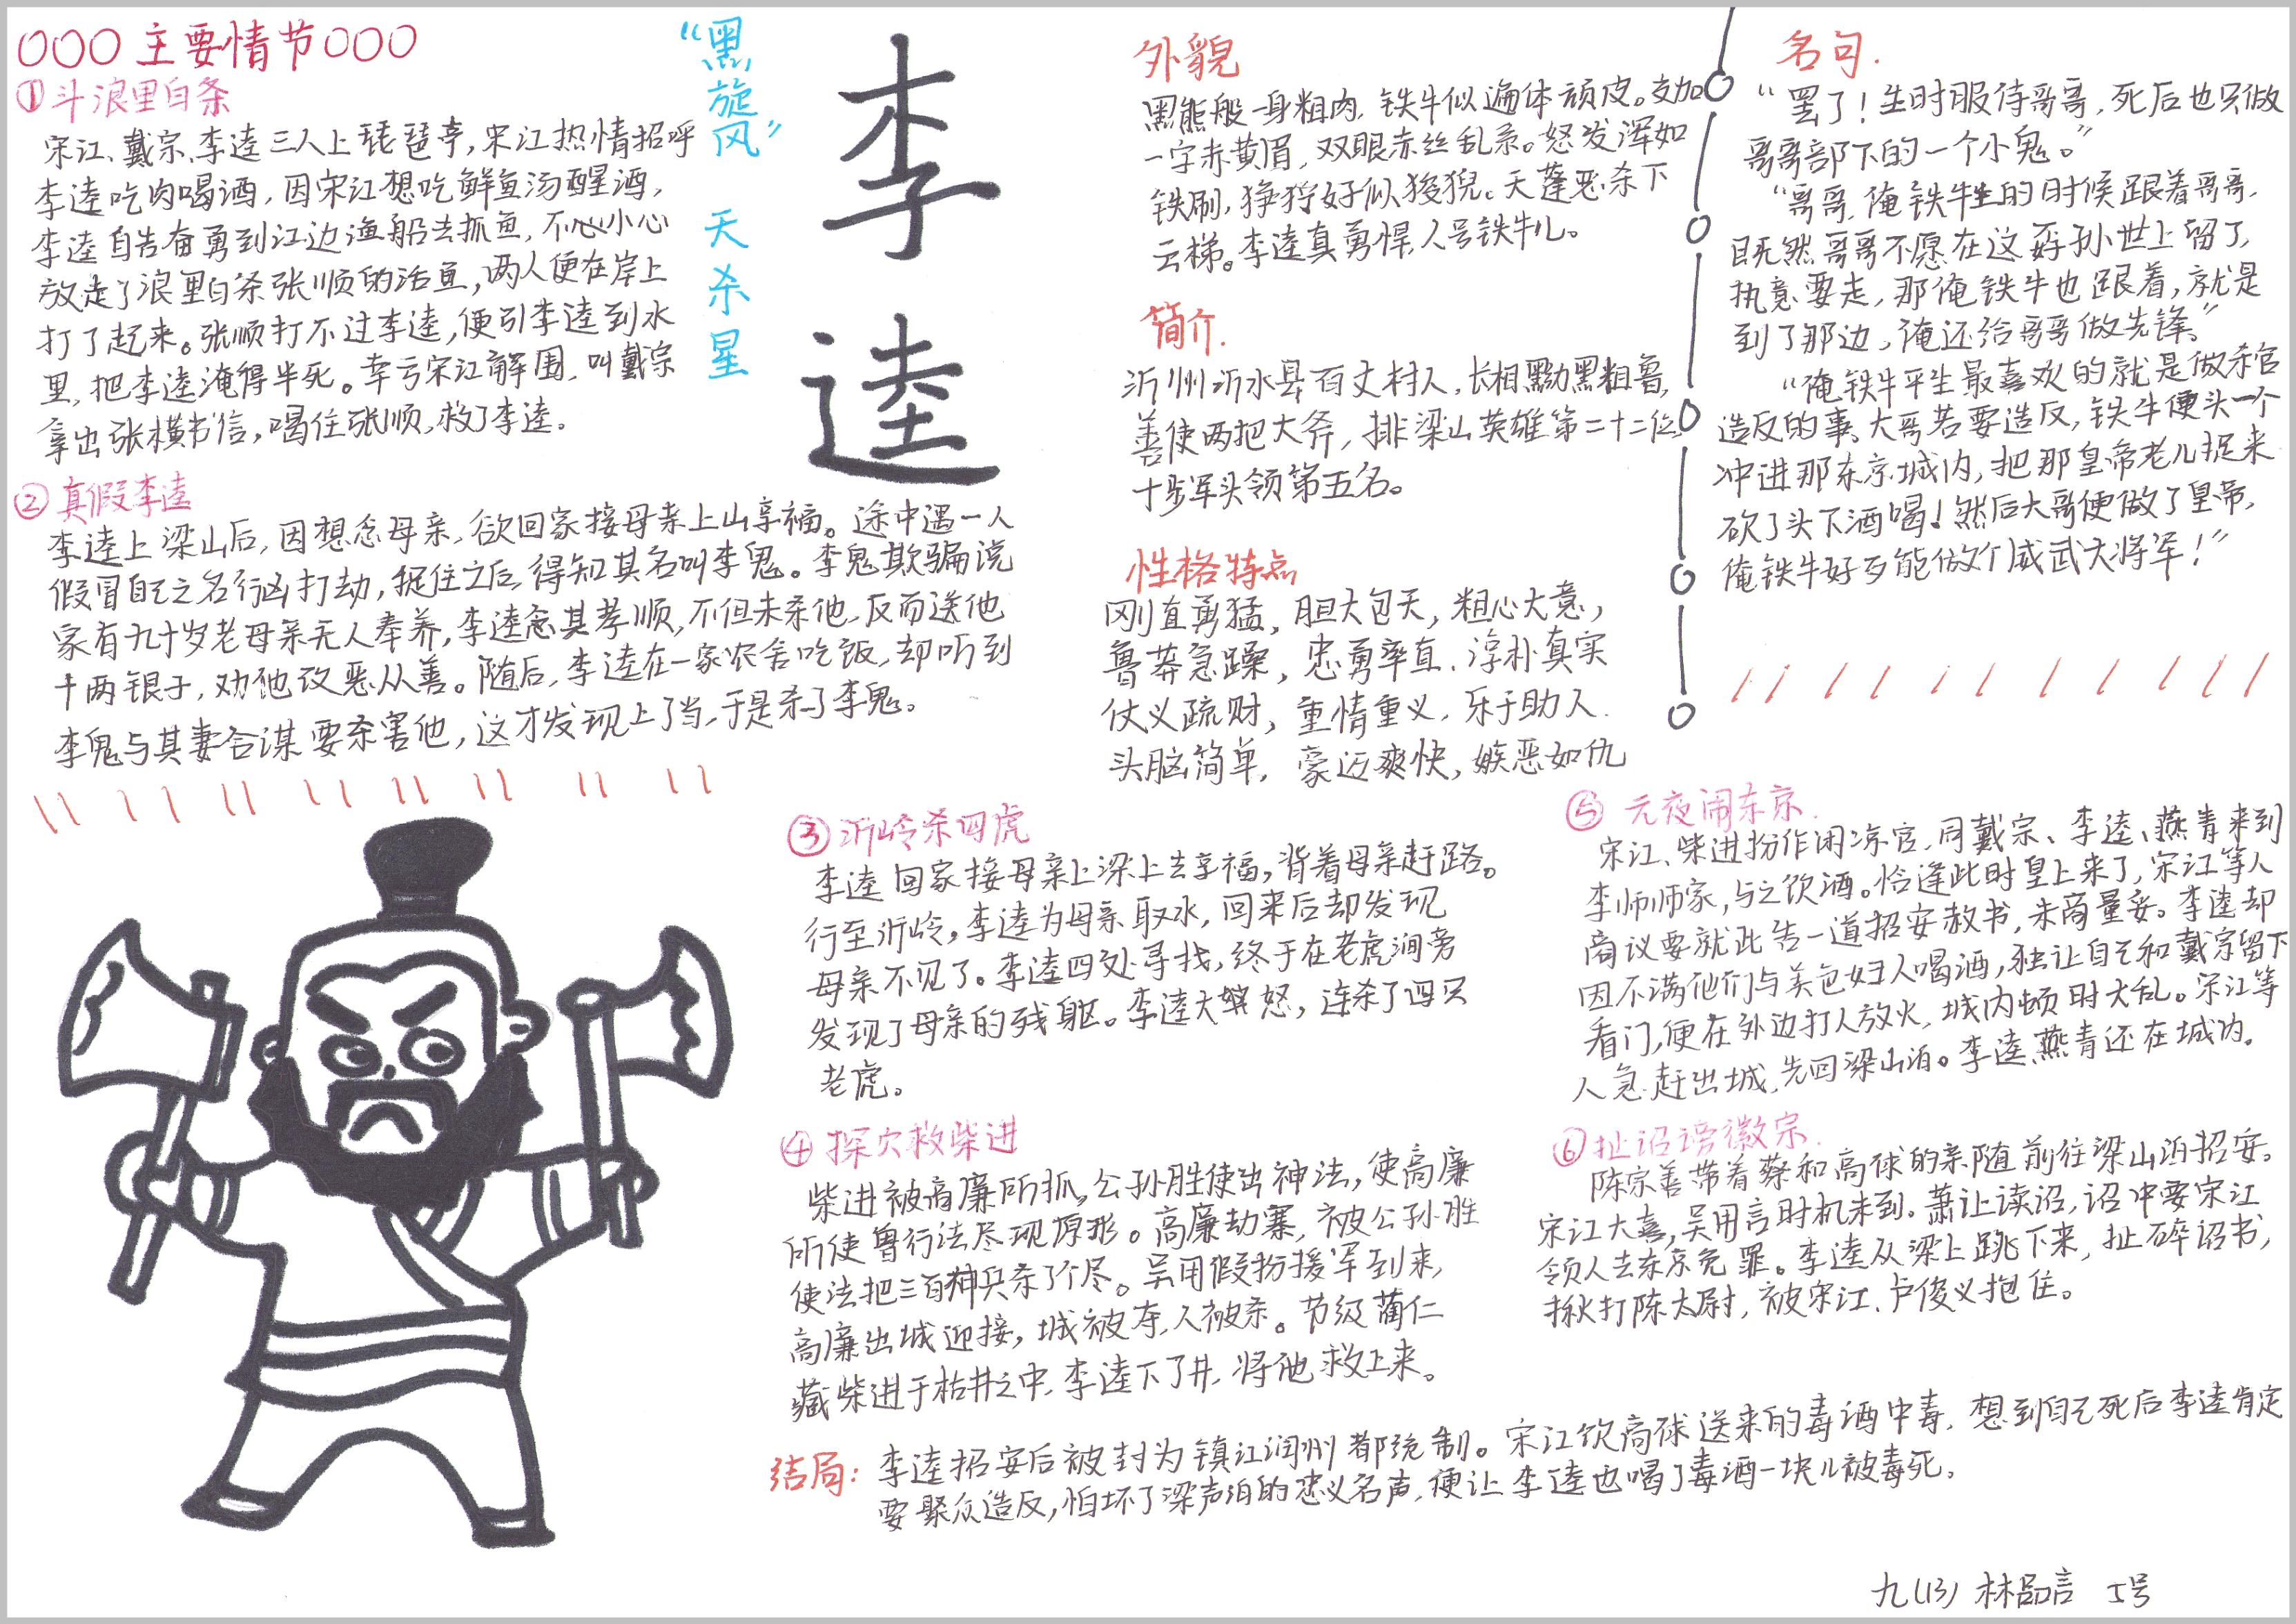 主要情节
①斗浪里白条
宋江、戴宗、李逵三人上琵琶亭,宋江热情招呼
李逵吃肉喝酒,因宋江想吃鲜鱼汤醒酒,
李逵自告奋勇到江边渔船去抓鱼,不心小心
放走了浪里白条张顺的活鱼,两人便在岸上
打了起来。张顺打不过李逵,便引李逵到水
里,把李逵淹得半死。幸亏宋江解围,叫戴宗
拿出张横书信,喝住张顺,救了李逵。
②真假李逵
李逵上梁山后,因想念母亲,欲回家接母亲上山享福。途中遇一人
假冒自己之名行凶打劫,捉住之后,得知其名叫李鬼。李鬼欺骗说
家有九十岁老母亲无人奉养,李逵念其孝顺,不但未杀他,反而送他
十两银子,劝他改恶从善。随后,李逵在一家农舍吃饭,却听到
李鬼与其妻合谋要杀害他,这才发现上了当,于是杀了李鬼。
“黑旋风”
天杀星
李逵
外貌
黑熊般一身粗肉,铁牛似遍体顽皮。交加
一字赤黄眉,双眼赤丝乱系。怒发浑如
铁刷,狰狞好似狻猊。天蓬恶杀下
云梯。李逵真勇悍,人号铁牛儿。
简介.
沂州沂水县百丈村人,长相黝黑粗鲁,
善使两把大斧,排梁山英雄第二十二位,
十步军头领第五名。
性格特点
刚直勇猛,胆大包天,粗心大意,
鲁莽急躁,忠勇率直,淳朴真实
仗义疏财,重情重义,乐于助人.
头脑简单,豪迈爽快,嫉恶如仇
名句.
“罢了!生时服侍哥哥,死后也只做
哥哥部下的一个小鬼。”
“哥哥,俺铁牛生的时候跟着哥哥,
既然哥哥不愿在这孬孙世上留了,
执意要走,那俺铁牛也跟着,就是
到了那边,俺还给哥哥做先锋”
“俺铁牛平生最喜欢的就是做杀官
造反的事、大哥若要造反,铁牛便头一个
冲进那东京城内,把那皇帝老儿捉来
砍了头下酒喝!然后大哥便做了皇帝,
俺铁牛好歹能做个威武大将军!”
③沂岭杀四虎
李逵回家接母亲上梁上去享福,背着母亲赶路。
行至沂岭,李逵为母亲取水,回来后却发现
母亲不见了。李逵四处寻找,终于在老虎洞旁
发现了母亲的残躯。李逵大怒,连杀了四只
老虎。
④探穴救柴进
柴进被高廉所抓,公孙胜使出神法,使高廉
所使兽行法尽现原形。高廉劫寨,被公孙胜
使法把三百神兵杀了个尽。吴用假扮援军到来,
高廉出城迎接,城被夺,人被杀。节级蔺仁
藏柴进于枯井之中,李逵下了井,将他救上来。
⑤元夜闹东京.
宋江、柴进扮作闲凉官,同戴宗、李逵、燕青来到
李师师家,与之饮酒。恰逢此时皇上来了,宋江等人
商议要就此告一道招安赦书,未商量妥。李逵却
因不满他们与美色妇人喝酒,独让自己和戴宗留下
看门,便在外边打人放火,城内顿时大乱。宋江等
人急赶出城,先回梁山泊。李逵、燕青还在城内。
⑥扯诏谤徽宗.
陈宗善带着蔡和高俅的亲随前往梁山泊招安。
宋江大喜,吴用言时机未到。萧让读诏,诏中要宋江
领人去东京免罪。李逵从梁上跳下来,扯碎诏书,
揪打陈太尉,被宋江、卢俊义抱住。
结局:李逵招安后被封为镇江润州都统制。宋江饮高俅送来的毒酒中毒,想到自己死后李逵肯定
要聚众造反,怕坏了梁声泊的忠义名声,便让李逵也喝了毒酒一块儿被毒死。
九(13) 林品言 5号